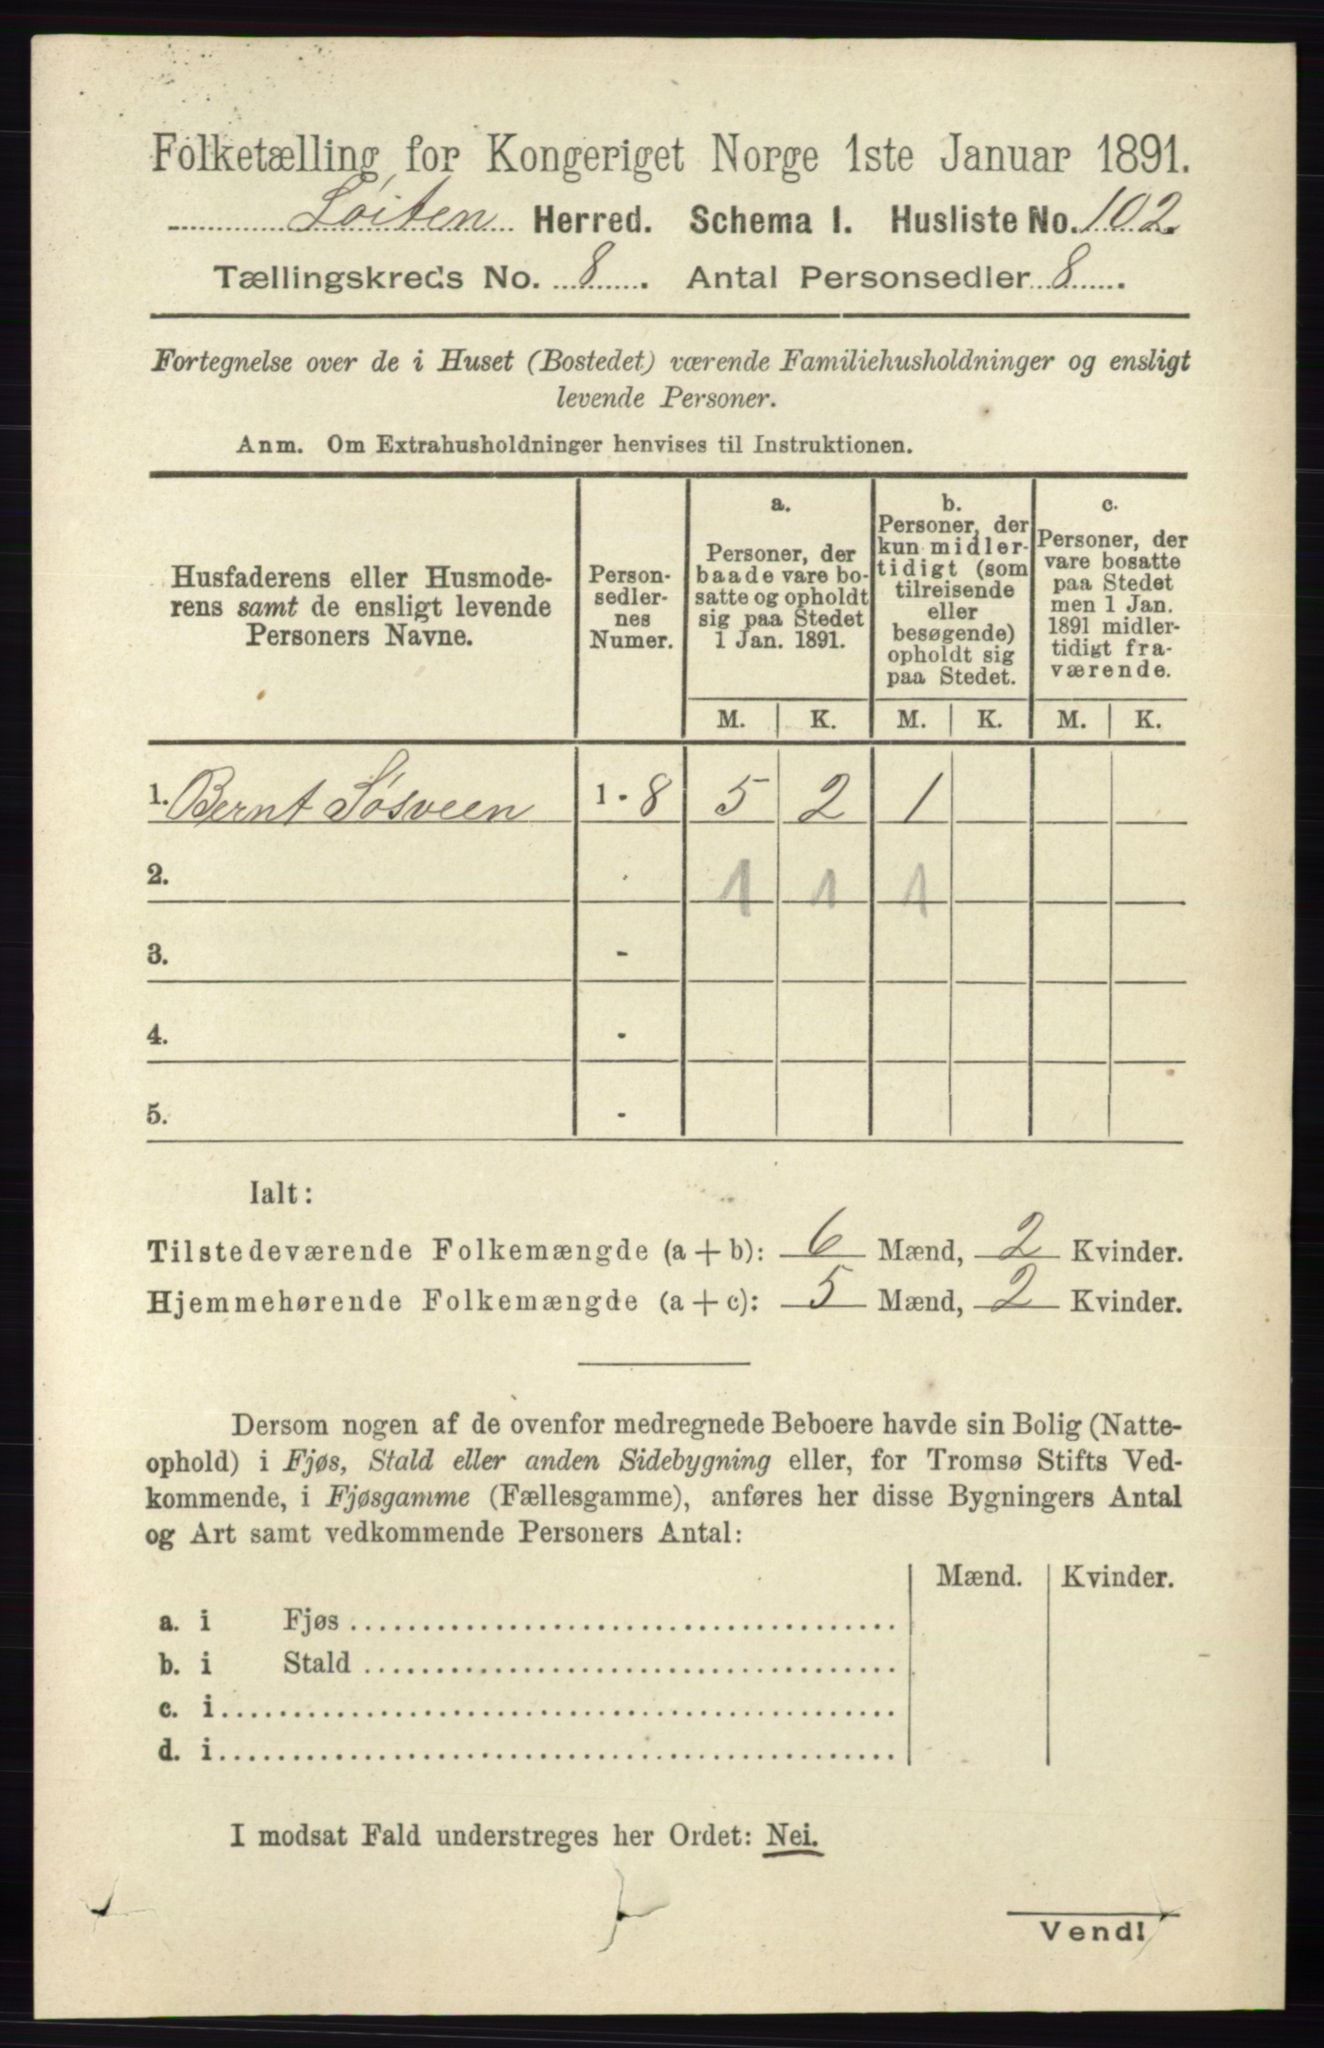 Folketælling for Kongeriget Norge 1ste Januar 1891.
Løiten Herred. Schema I. Husliste No. 102.
Tællingskreds No. 8. Antal Personsedler 8.
Fortegnelse over de i Huset (Bostedet) værende Familiehusholdninger og ensligt
levende Personer.
Anm. Om Extrahusholdninger henvises til Instruktionen.
Husfaderens eller Husmode-
rens samt de ensligt levende
Personers Navne.
Person-
sedler-
nes
Numer.
a.
Personer, der
baade vare bo-
satte og opholdt
sig paa Stedet
1 Jan. 1891.
b.
Personer, der
kun midler-
tidigt (som
tilreisende
eller
besøgende)
opholdt sig
paa Stedet.
c.
Personer, der
vare bosatte
paa Stedet
men 1 Jan.
1891 midler-
tidigt fra-
værende.
M. K. M. K. M. K.
1. Bernt Løsveen 1 - 8 5 2 1
2. - 1 1 1
3. -
4. -
5. -
Ialt:
Tilstedeværende Folkemængde (a + b): 6 Mænd, 2 Kvinder.
Hjemmehørende Folkemængde (a + c): 5 Mænd, 2 Kvinder.
Dersom nogen af de ovenfor medregnede Beboere havde sin Bolig (Natte-
ophold) i Fjøs, Stald eller anden Sidebygning eller, for Tromsø Stifts Ved-
kommende, i Fjøsgamme (Fællesgamme), anføres her disse Bygningers Antal
og Art samt vedkommende Personers Antal:
Mænd. Kvinder.
a. i Fjøs
b. i Stald
c. i
d. i
I modsat Fald understreges her Ordet: Nei.
Vend!